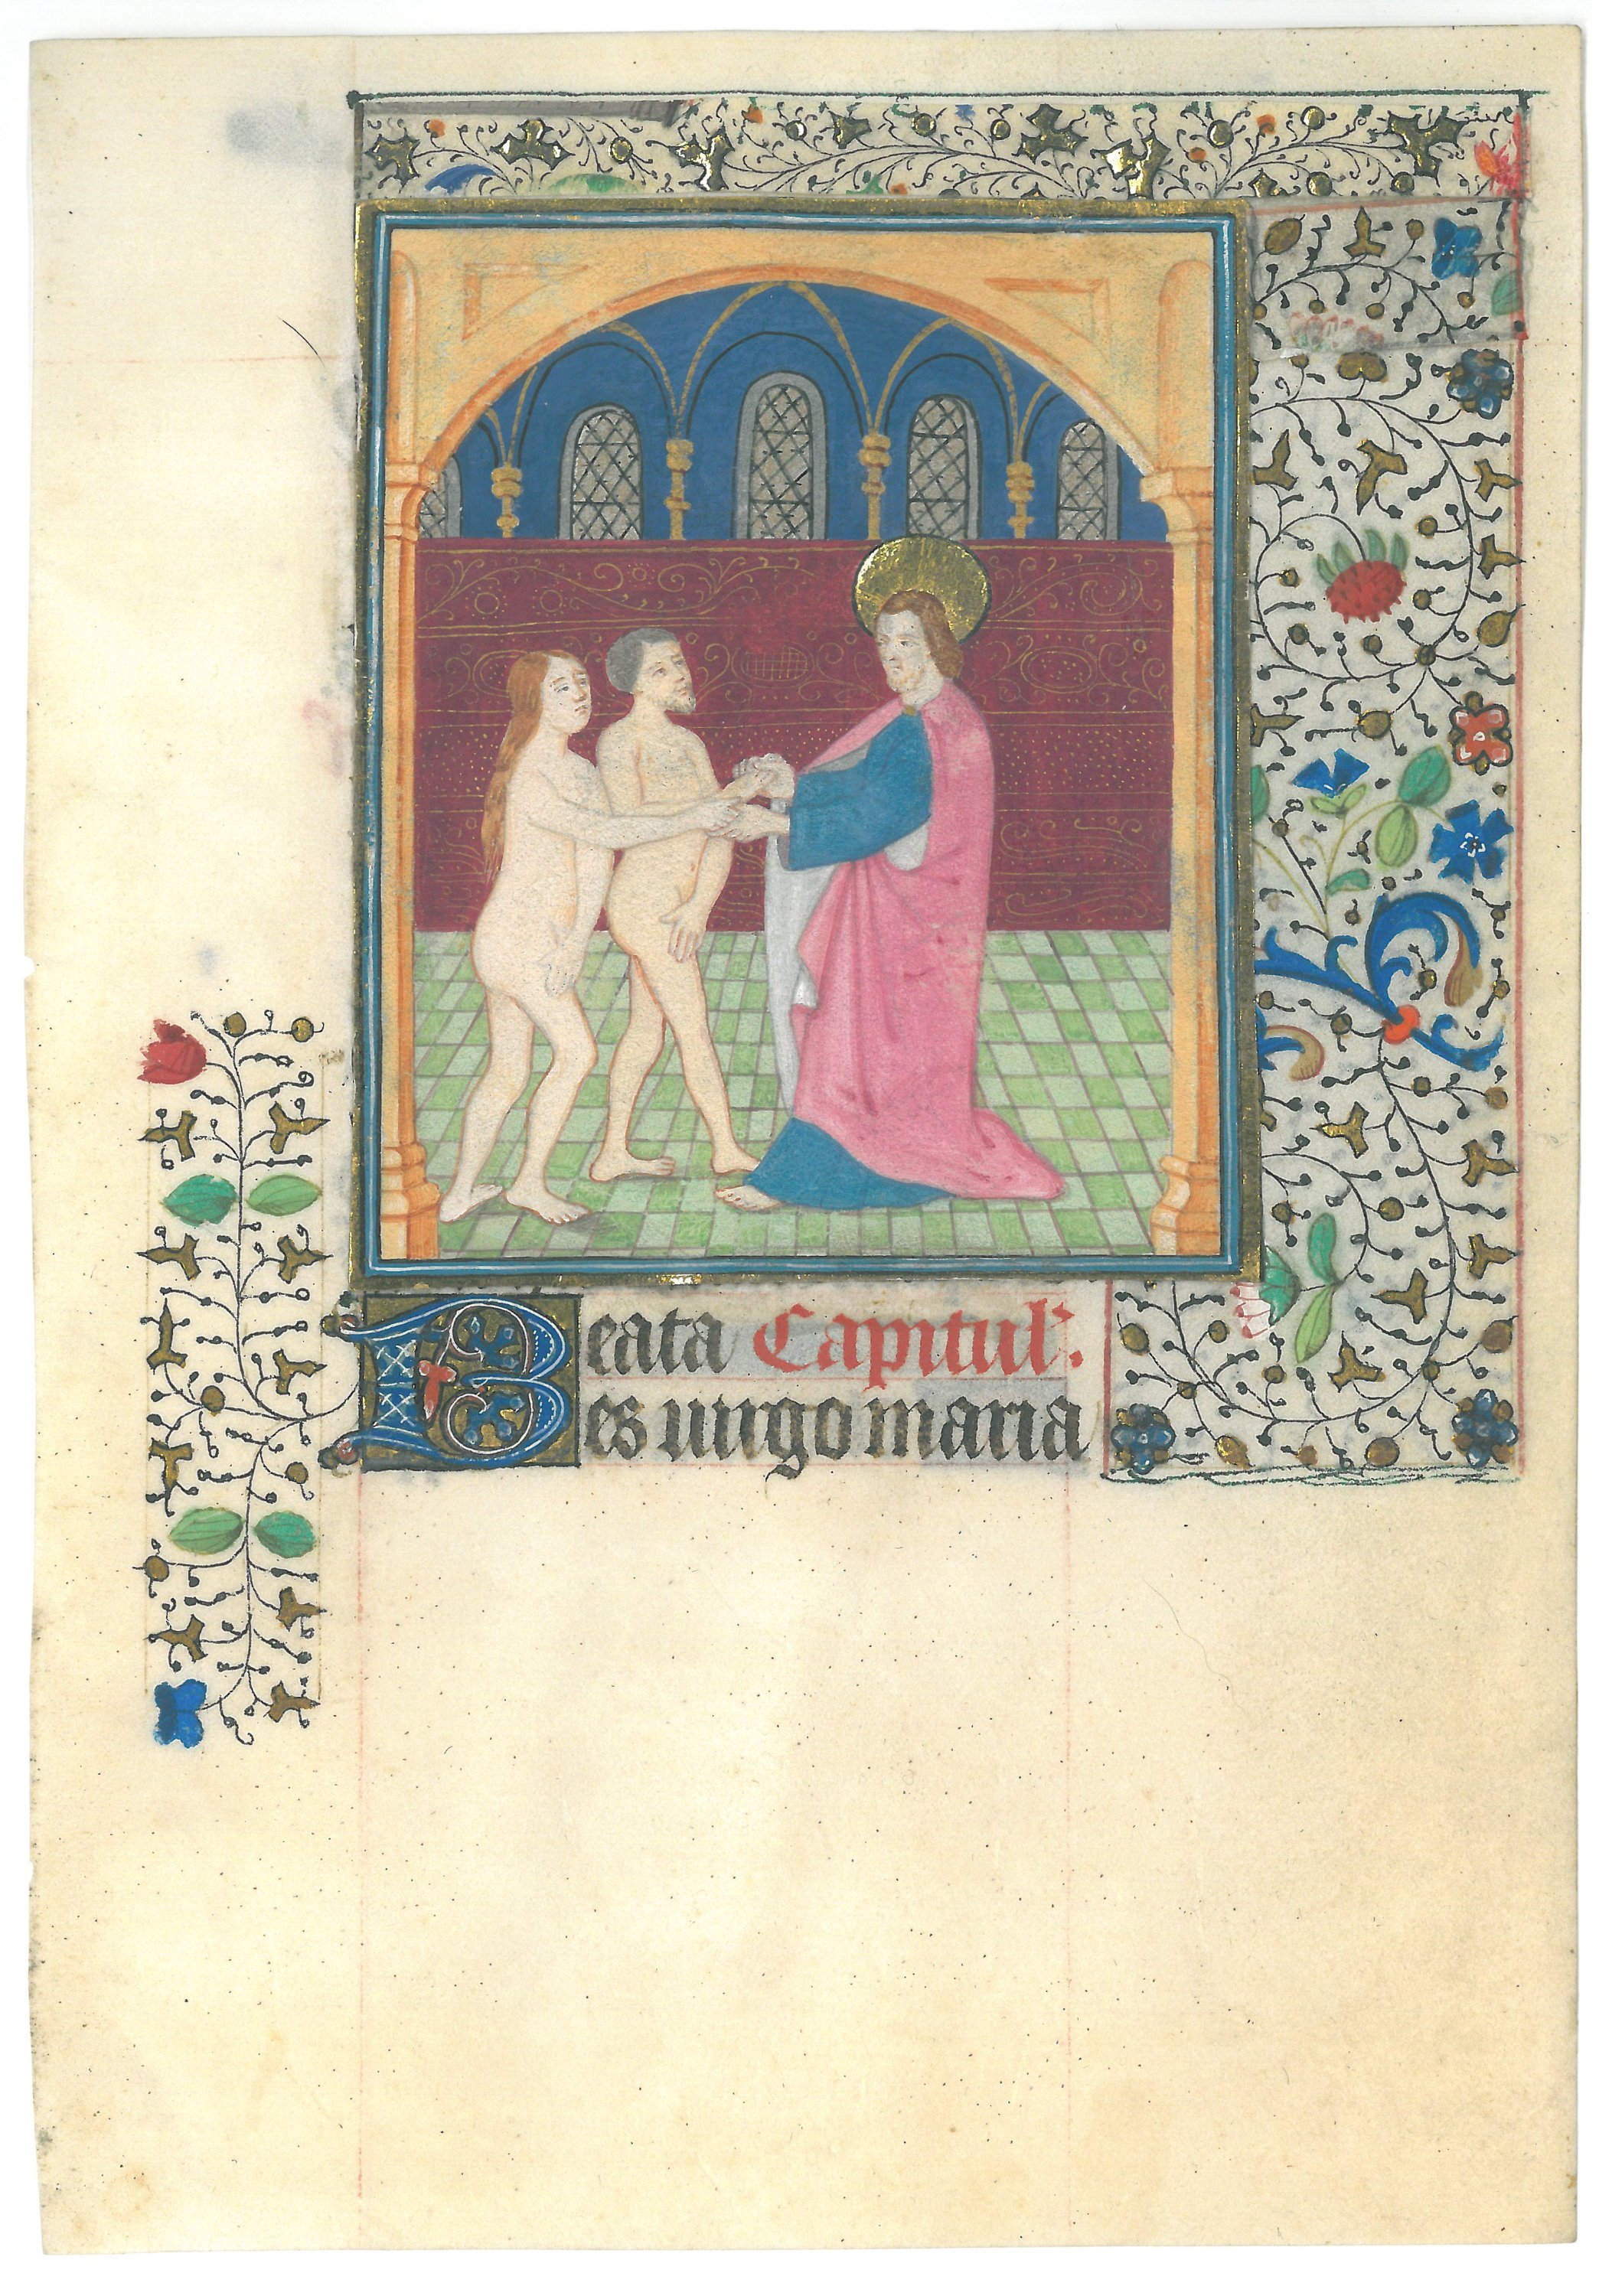 Beata Capitul'.
es uirgo maria